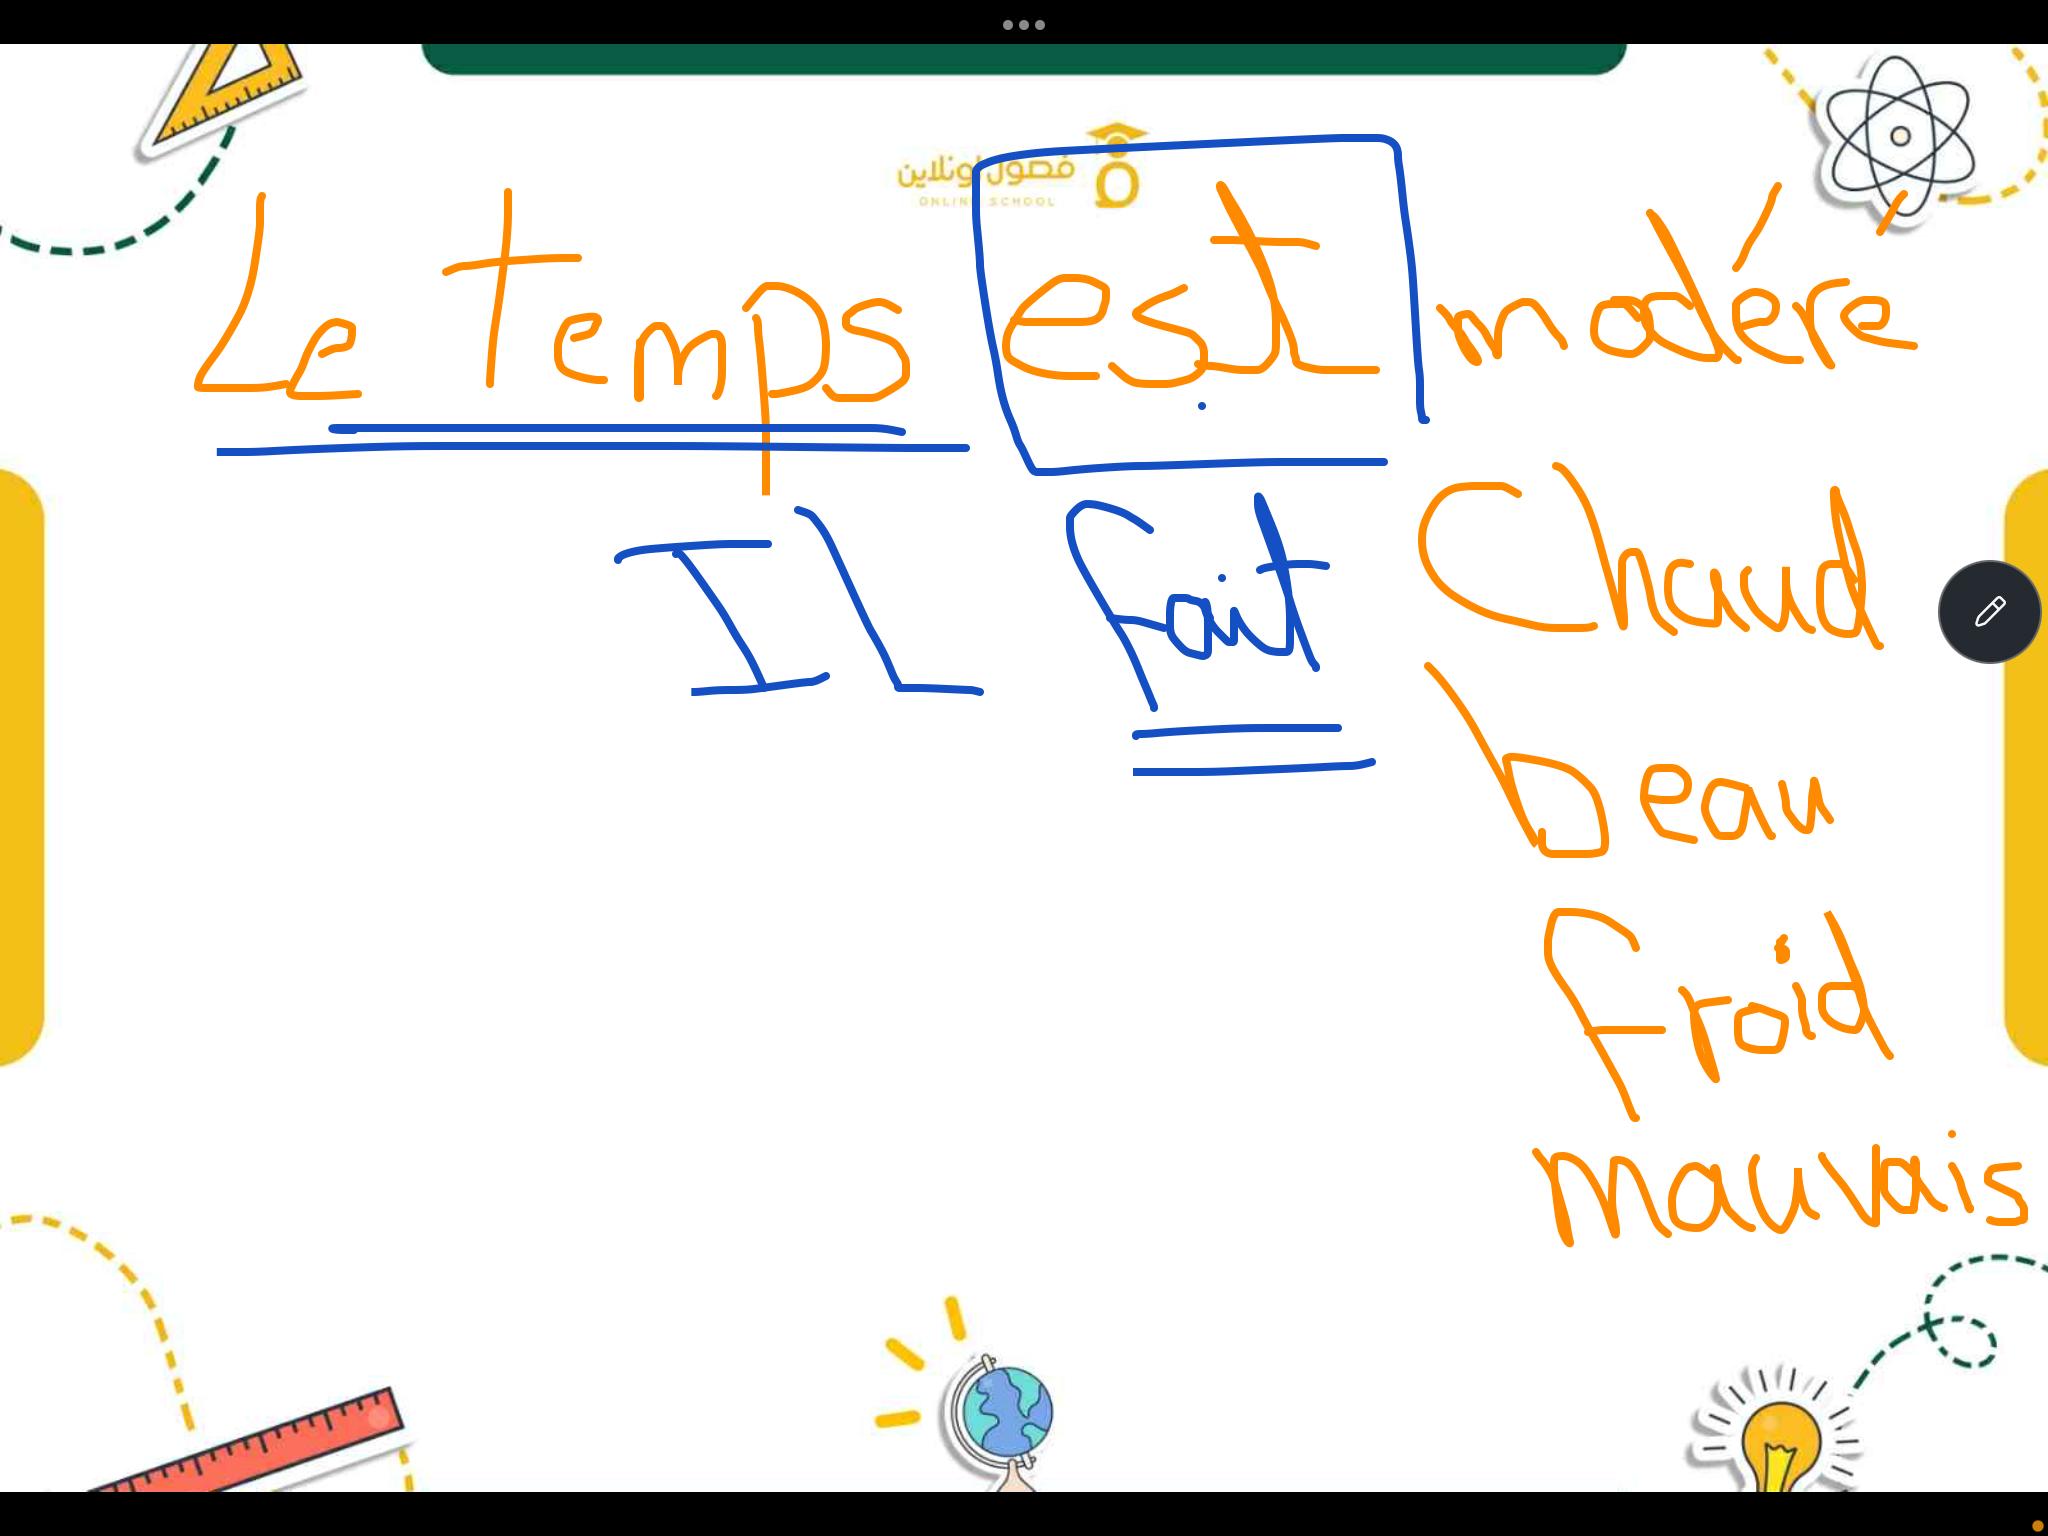 فصول اونلاين
ONLINE SCHOOL
Le temps est modéré
Il fait chaud
beau
froid
mauvais